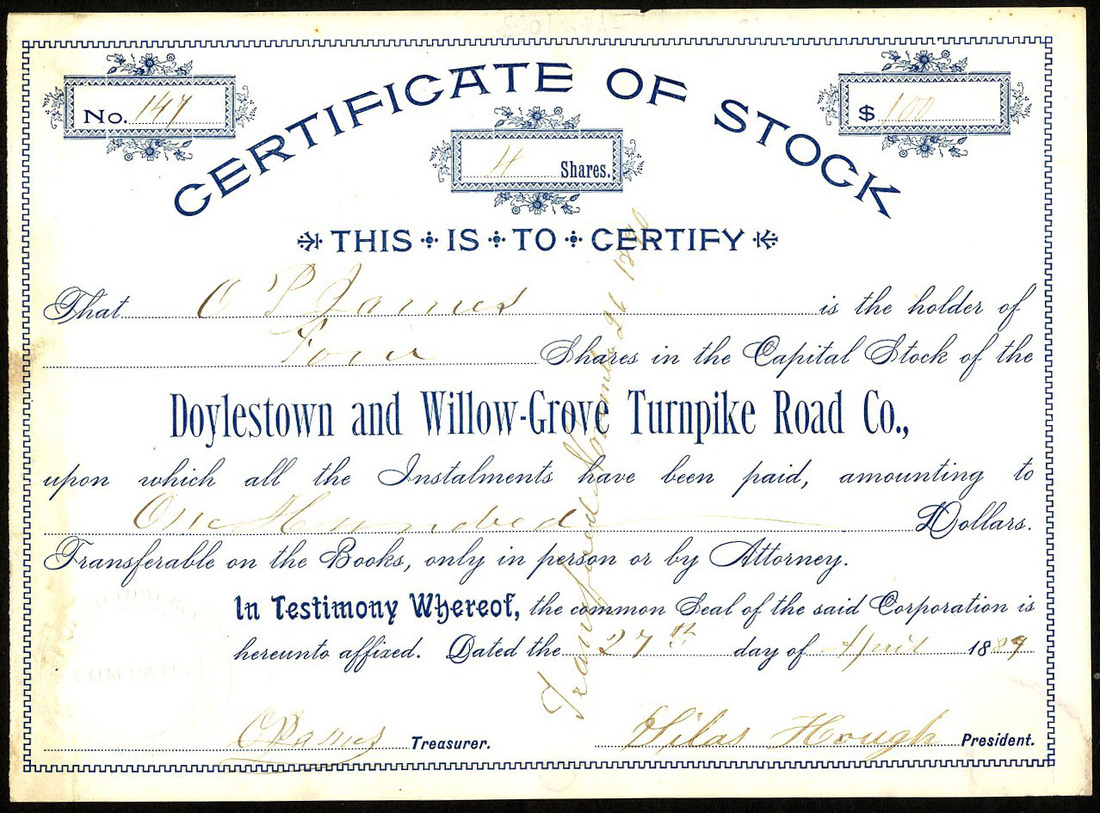 CERTIFICATE OF STOCK
No. 147
$ 100
4 Shares.
THIS IS TO CERTIFY
That O P James is the holder of
Four Shares in the Capital Stock of the
Doylestown and Willow-Grove Turnpike Road Co.,
upon which all the Instalments have been paid, amounting to
One Hundred Dollars.
Transferable on the Books, only in person or by Attorney.
In Testimony Whereof, the common Seal of the said Corporation is
hereunto affixed. Dated the 27th day of April 1889
COMPANY
OP James Treasurer.
Silas Hough President.
Transfered November 26 1890